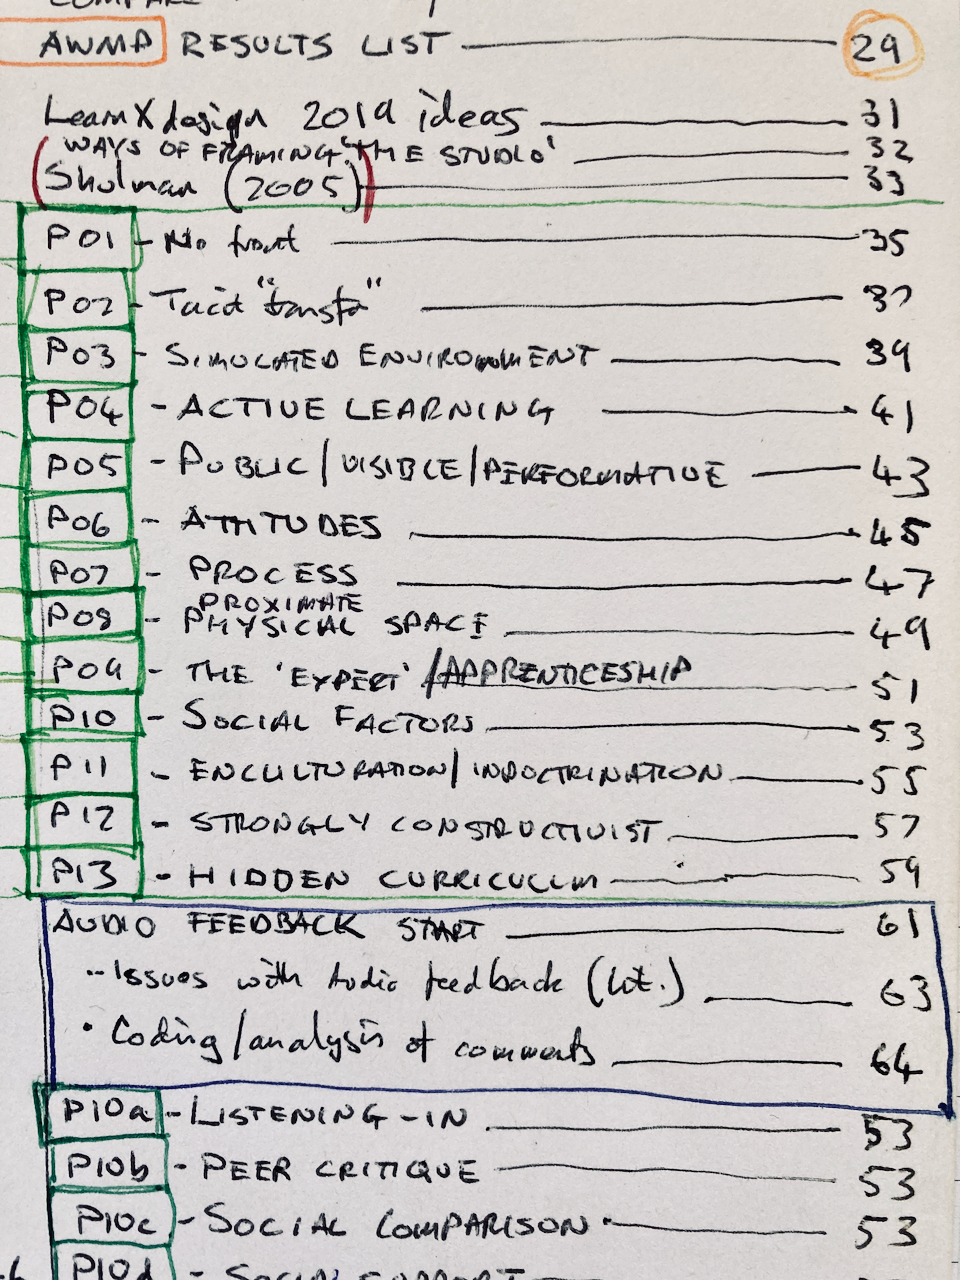 COMPARE
AWMA RESULTS LIST 29
LearnXdesign 2019 ideas 31
WAYS OF FRAMING 'THE STUDIO' 32
(Shulman (2005)) 33
P01 - No front 35
P02 - Tacit "transfer" 37
P03 - SIMULATED ENVIRONMENT 39
P04 - ACTIVE LEARNING 41
P05 - PUBLIC/VISIBLE/PERFORMATIVE 43
P06 - ATTITUDES 45
P07 - PROCESS 47
PROXIMATE
P08 - PHYSICAL SPACE 49
P09 - THE 'EXPERT'/APPRENTICESHIP 51
P10 - SOCIAL FACTORS 53
P11 - ENCULTURATION/INDOCTRINATION 55
P12 - STRONGLY CONSTRUCTIVIST 57
P13 - HIDDEN CURRICULUM 59
AUDIO FEEDBACK START 61
- Issues with Audio feedback (Lit.) 63
• Coding/analysis of comments 64
P10a - LISTENING-IN 53
P10b - PEER CRITIQUE 53
P10c - SOCIAL COMPARISON 53
P10d - SOCIAL SUPPORT